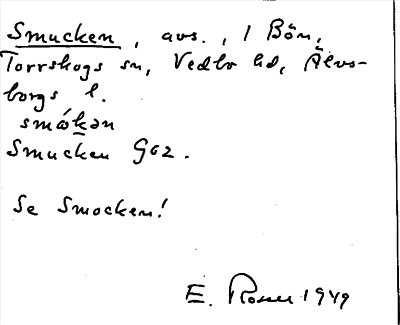 Smucken, avs., 1 Bön,
Torrskogs sn, Vedbo hd, Älvs-
borgs l.
smókən
Smucken G62.
Se Smocken!
E. Rosell 1949